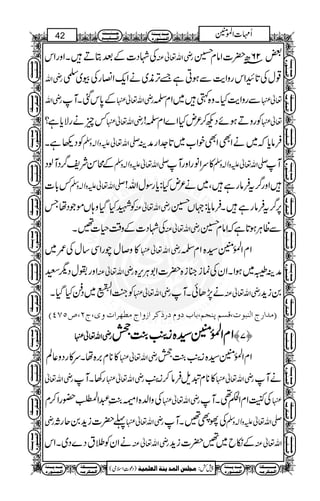 اُمہات المؤمنین
42
بعض ۶۲ھ حضرت امام حسین رضی اللہ تعالٰی عنہ کی شہادت کے بعد بتاتے ہیں۔ اور اس
قول کی تائید اس روایت سے ہوتی ہے جسے ترمذی نے ایک انصار کی بیوی سلمیٰ رضی اللہ
تعالٰی عنہا سے روایت کیا، وہ کہتی ہیں میں ام سلمہ رضی اللہ تعالٰی عنہا کے پاس گئی۔ آپ رضی اللہ
تعالٰی عنہا کو روتے ہوئے دیکھ کر عرض کیا اے ام سلمہ! رضی اللہ تعالٰی عنہا کس چیز نے رلایا ہے؟
فرمایا کہ میں نے ابھی ابھی خواب میں تاجدار مدینہ صلی اللہ تعالٰی علیہ والہ وسلم کو دیکھا ہے۔
آپ صلی اللہ تعالٰی علیہ والہ وسلم کا سر انور اور آپ صلی اللہ تعالٰی علیہ والہ وسلم کے محاسن شریف گرد آلود
ہیں اور گریہ فرما رہے ہیں، میں نے عرض کیا: یا رسول اللہ! صلی اللہ تعالٰی علیہ والہ وسلم کس بات
پر گریہ فرما رہے ہیں۔ فرمایا: جہاں حسین رضی اللہ تعالٰی عنہ کو شہید کیا گیا وہاں موجود تھا، جس
سے ظاہر ہوتا ہے کہ امام حسین رضی اللہ تعالٰی عنہ کی شہادت کے وقت حیات تھیں۔
ام المؤمنین سیدہ ام سلمہ رضی اللہ تعالٰی عنہا کا وصال چوراسی سال کی عمر میں
مدینہ طیبہ میں ہوا۔ ان کی نماز جنازہ حضرت ابو ہریرہ رضی اللہ تعالٰی عنہ اور بقول دیگر سعید
بن زید رضی اللہ تعالٰی عنہ نے پڑھائی۔ آپ رضی اللہ تعالٰی عنہا کو جنت البقیع میں دفن کیا گیا۔
(مدارج النبوت، قسم پنجم، باب دوم درذکر ازواج مطہرات وی، ج۲، ص۴۷۵)
﴿۷﴾ ام المؤمنین سیدہ زینب بنت جحش رضی اللہ تعالٰی عنہا
ام المؤمنین سیدہ زینب بنت جحش رضی اللہ تعالٰی عنہا کا نام برہ تھا۔ سرکار دو عالم
نے آپ رضی اللہ تعالٰی عنہا کا نام تبدیل فرما کر زینب رضی اللہ تعالٰی عنہا رکھا۔ آپ رضی اللہ تعالٰی
عنہا کی کنیت ام الحکم تھی۔ آپ رضی اللہ تعالٰی عنہا کی والدہ امیمہ بنت عبدالمطلب حضور اکرم
صلی اللہ تعالٰی علیہ والہ وسلم کی پھوپھی تھیں۔ آپ رضی اللہ تعالٰی عنہا پہلے حضرت زید بن حارثہ رضی
اللہ تعالٰی عنہ کے نکاح میں تھیں حضرت زید رضی اللہ تعالٰی عنہ نے ان کو طلاق دے دی۔ اس
پیش کش: مجلس المدینۃ العلمیۃ (دعوت اسلامی)